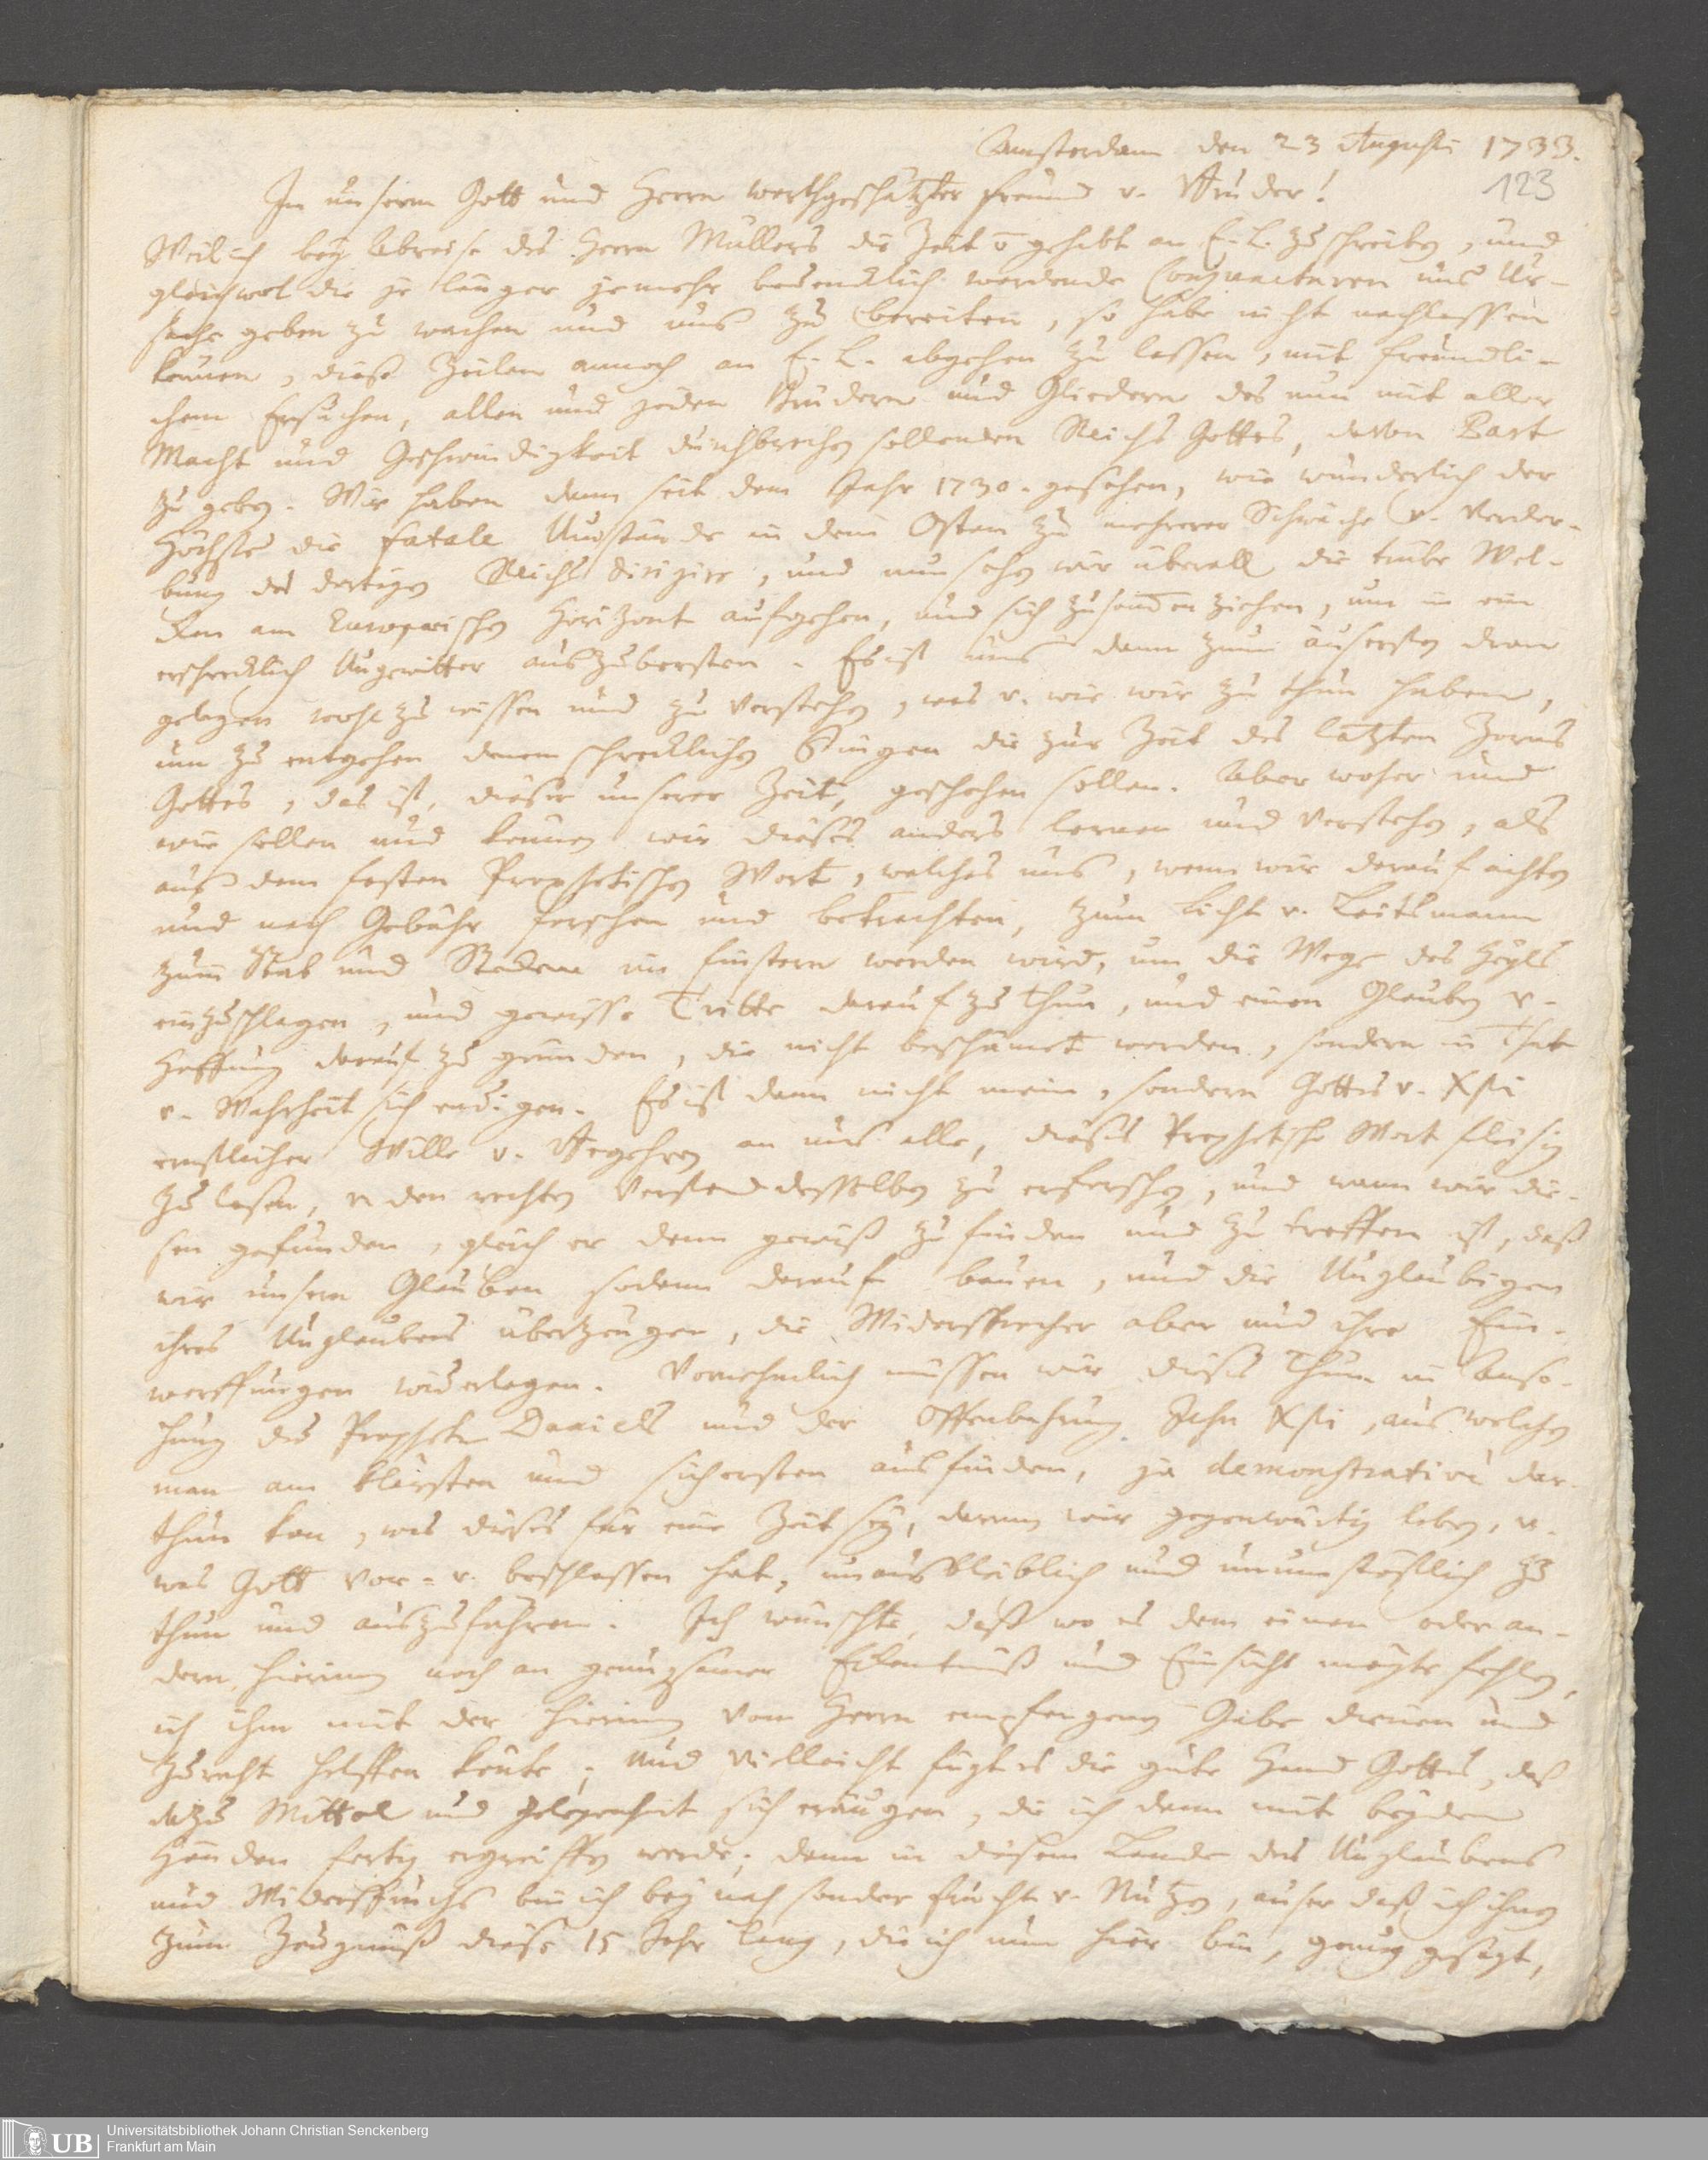 Amsterdam den 23 Augusti 1733.
123
In unserm Gott und Herrn werthgeschätzter freund v. Bruder!
Weil ich bey Abreise des Herrn Müllers die Zeit ō gehabt an E. L. zu schreiben, und
gleichwol die je länger jemehr bedencklich werdende Conjuncturen uns Ur-
sache geben zu wachen und uns zu bereiten, so habe nicht nachlassen
können, diese Zeilen annoch an E. L. abgehen zu lassen, mit freundli-
chem Ersuchen, allen und jeden Brüdern und Gliedern des nun mit aller
Macht und Geschwindigkeit durchbrechen sollenden Reichs Gottes, davon Part
zu geben. Wir haben dann seit dem Jahr 1730. gesehen, wie wunderlich der
Höchste die fatale Umstände in dem Osten zu mehrerer Schwäche v. Verder-
bung des dortigen Reichs dirigire, und nun sehen wir überall die trübe Wol-
cken am Europaeischen Horizont aufgehen, und sich zusam̄en ziehen, um in ein
erschrecklich Ungewitter auszubersten. Es ist uns dann zum äusersten dran
gelegen wohl zu wissen und zu verstehen, was v. wie wir zu thun haben,
um zu entgehen denen schrecklichen Dingen die zur Zeit des letzten Zorns
Gottes, das ist, dieser unserer Zeit, geschehen sollen. Aber woher und
wie sollen und können wir dieses anders lernen und verstehen, als
aus dem festen Prophetischen Wort, welches uns, wenn wir darauf achten
und nach Gebühr forschen und betrachten, zum Licht v. Leitsmann
zum Stab und Stecken im finstern werden wird, um die Wege des Heyls
einzuschlagen, und gewisse Tritte darauf zu thun, und einen Glauben v.
Hoffnung darauf zu gründen, die nicht beschämet werden, sondern in That
v. Wahrheit sich endigen. Es ist dann nicht mein, sondern Gottes v. Xsti
ernstlicher Wille v. Begehren an uns alle, dieses Prophetische Wort fleisig
zu lesen, v den rechten Verstand desselben zu erforschen, und wann wir die-
sen gefunden, gleich er denn gewiß zu finden und zu treffen ist, daß
wir unsern Glauben sodann darauf bauen, und die Unglaubigen
ihres Unglaubens überzeugen, die Widersprecher aber und ihre Ein-
werffungen widerlegen. Vornehmlich müssen wir dieses thun in Anse-
hung des Propheten Daniels und der Offenbahrung Jesu Xsti, aus welchen
man am klärsten und sichersten ausfinden, ja demonstrativè dar-
thun kan, was dieses für eine Zeit sey, darinn wir gegenwärtig leben, v.
was Gott vor- v. beschlossen hat, unausbleiblich und unumstößlich zu
thun und auszuführen. Ich wünschte, daß wo es dem einen oder an-
dern hierinn noch an genugsamer Erkentnuß und Einsicht mögte fehlen,
ich ihm mit der hierinn vom Herrn empfangenen Gabe dienen und
zurecht helffen könte; und vielleicht fügt es die gute Hand Gottes, daß
dazu Mittel und Gelegenheit sich eräugen, die ich dann mit beyden
Händen fertig ergreiffen werde; denn in diesem Lande des Unglaubens
und Widerspruchs bin ich bey nah sonder frucht v. Nutzen, auser daß ich ihnen
zum Zeugnuß diese 15 Jahr lang, die ich nun hier bin, genug gesagt,
Universitätsbibliothek Johann Christian Senckenberg
Frankfurt am Main
UB